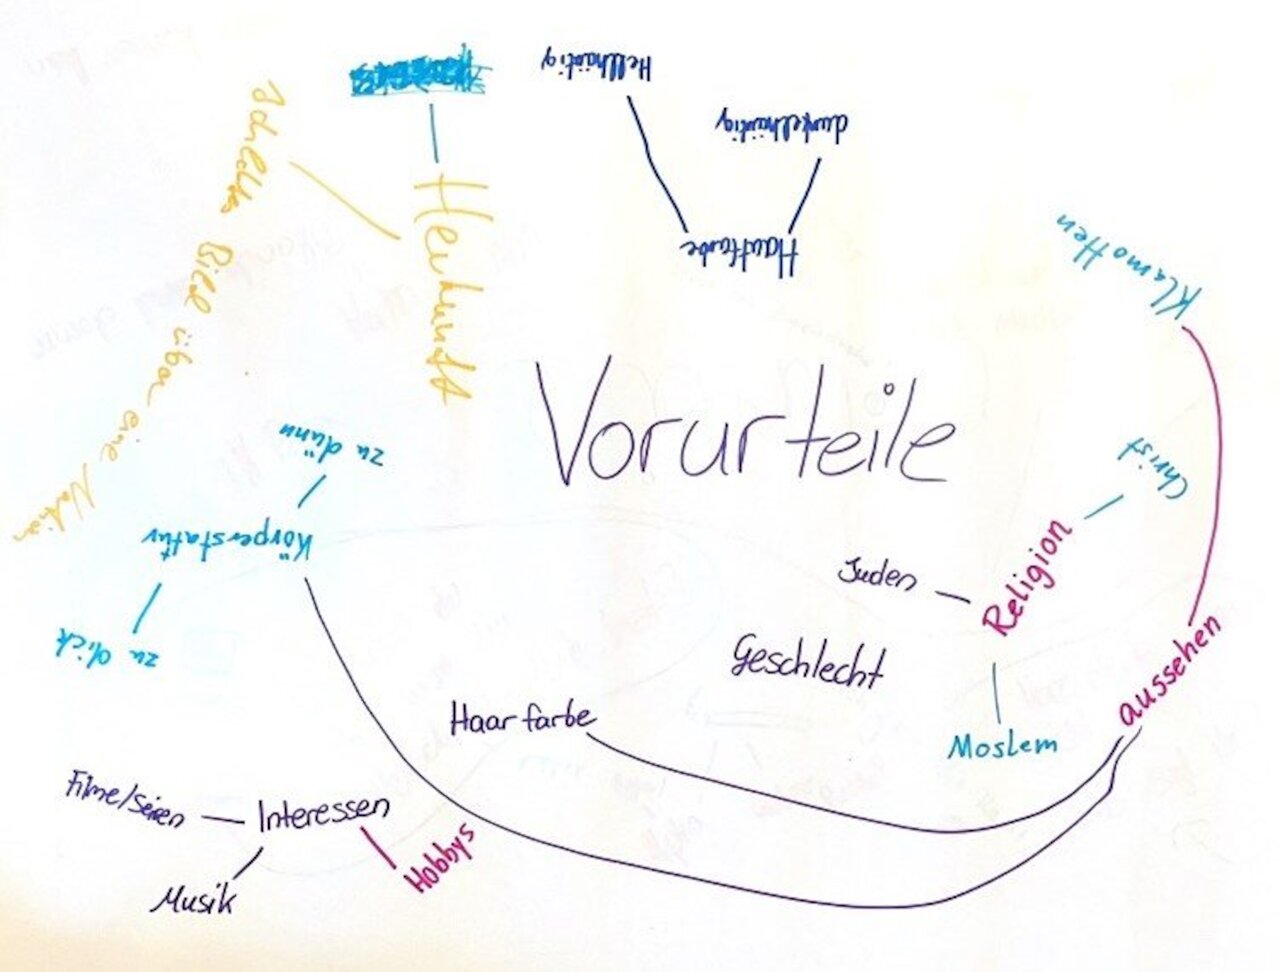 Hellhäutig
dunkelhäutig
Hautfarbe
Herkunft
Schlechtes Bild über eine Nation
Klamotten
Vorurteile
Christ
zu dünn
Körperstatur
zu dick
Juden
Religion
Geschlecht
Moslem
aussehen
Haarfarbe
Filme/Serien
Interessen
Hobbys
Musik